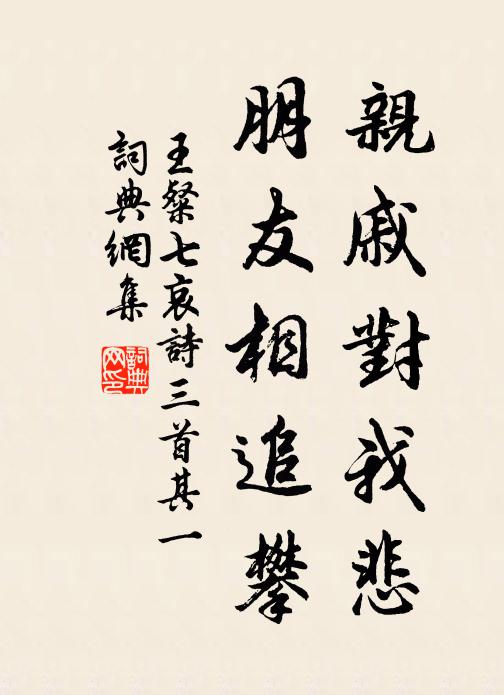 親戚對我悲
朋友相追攀
王粲七哀詩三首其一
詞典網集
詞典网印